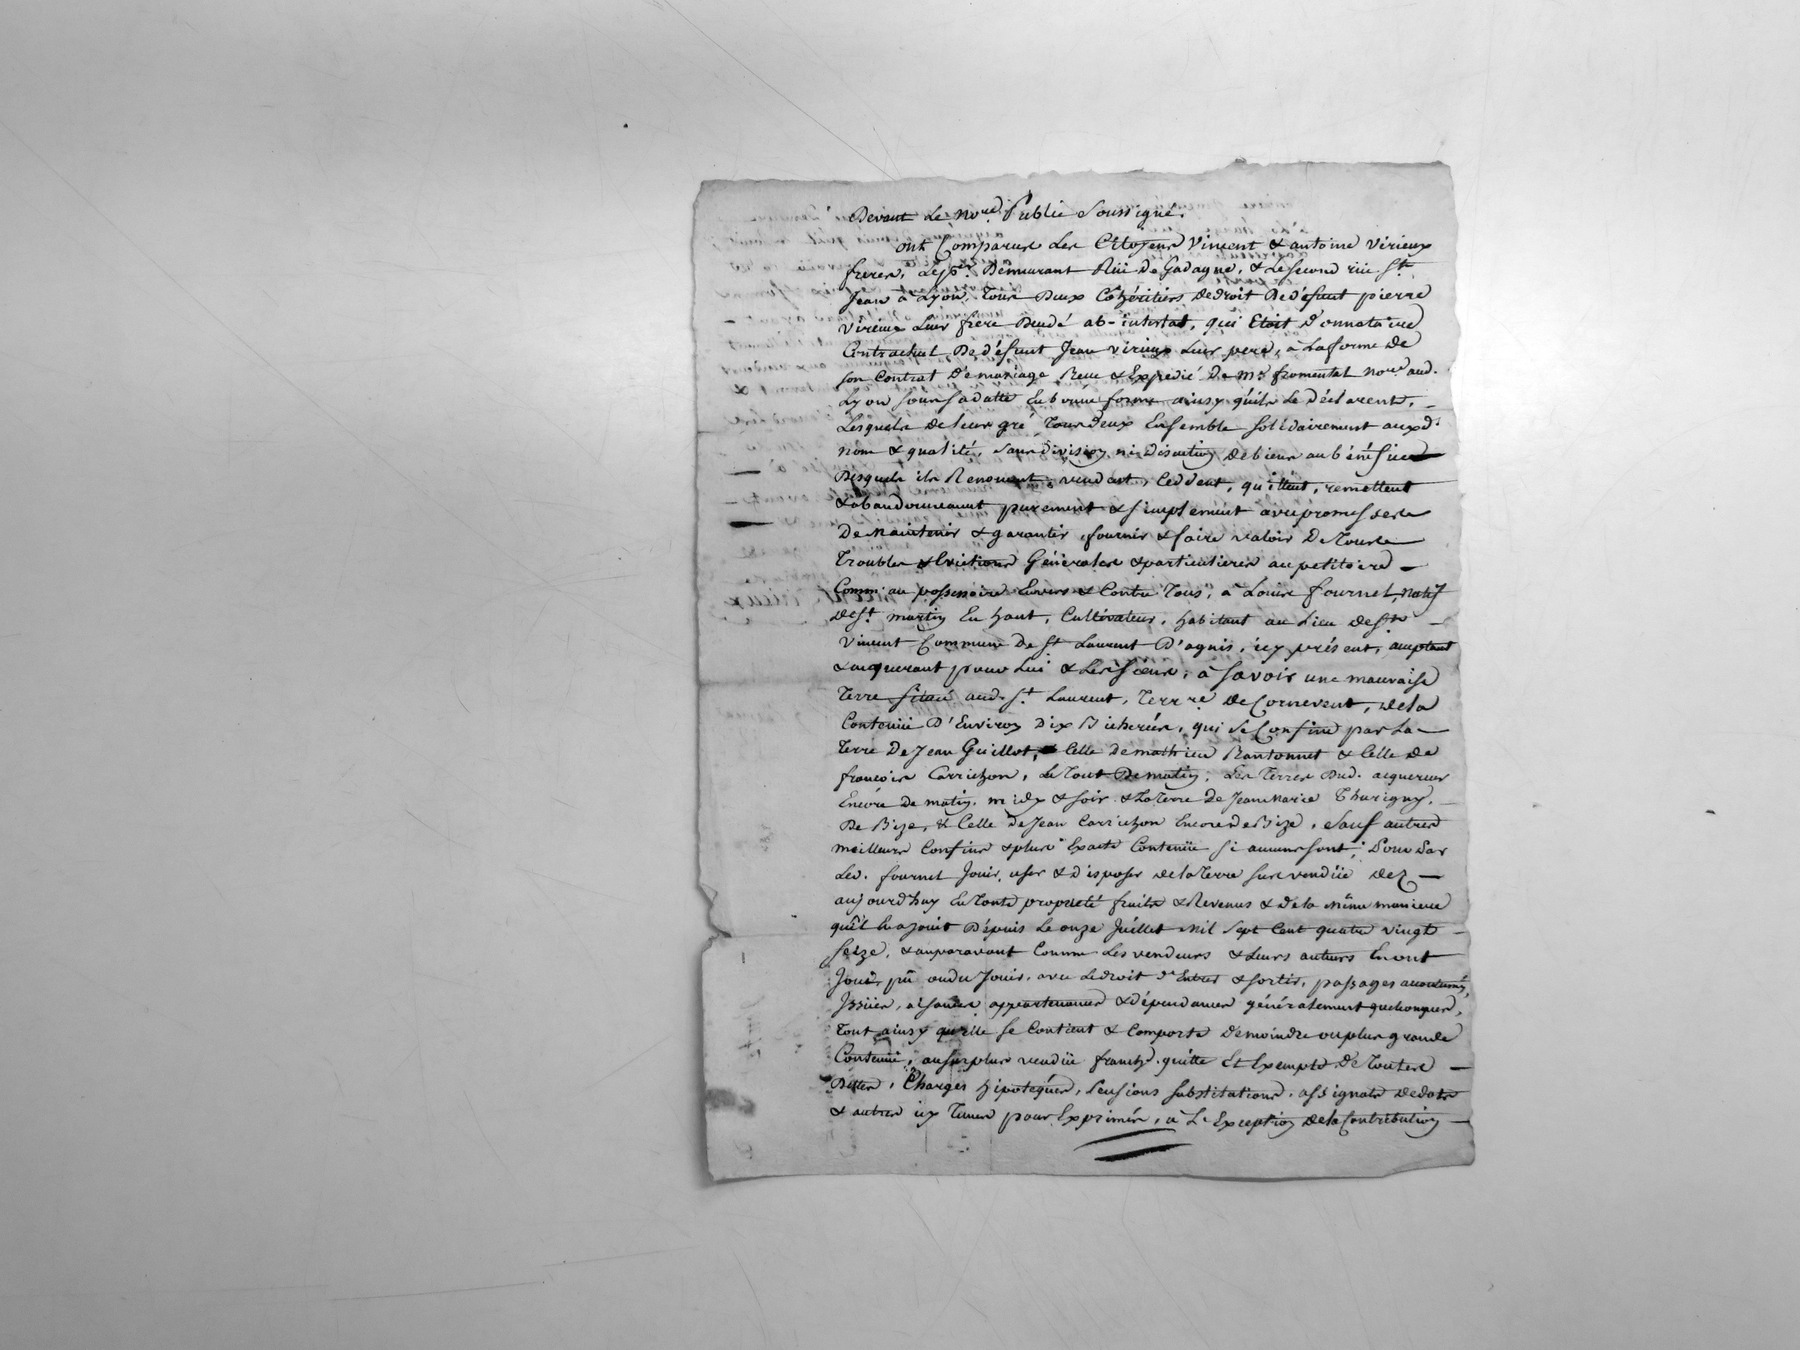 Devant Le No.re Public Soussigné.
Ont Comparus Les Citoyens Vincent & antoine Virieux
freres, Le p.er Demurant Rüe De Gadagne, & Le second rüe S.t
Jean à Lyon, Tous Deux Cohéritiers de droit De d'éfunt pierre
Virieux Leur frere Décédé ab-intestat, qui Etoit D'onnataire
Contractuel De d'éfunt Jean virieux Leur pere, à La forme de
son Contrat De mariage Reçu & Expedié De M.e fromental No.re aud.
Lyon sous sa datte En bonne forme ainsy quils Le Déclarent,
Lesquels de leur gré Tous deux Ensemble solidairement auxd.
nom & qualité, sans division ni discution de biens au bénéfice
Desquels ils Renoncent, vendent, Ceddent, quittent, remettent
& abandonnent purement & simplement avec promesse de
De Maintenir & garantir, fournir & faire valoir De Tous
Troubles & Evictions Générales & particulieres au petitoire
Comm' au possessoire Envers & Contre Tous, à Louis fournel, natif
de S.t martin En haut, Cultivateur, habitant au Lieu de S.t
Vincent Commune de S.t Laurent D'agnis, icy présent, acceptant
& acquerant pour Lui & Les siens, à savoir une mauvaise
Terre située aud. S.t Laurent, Terr.re de Cornevent, de la
Contenüe D'Environ Dix Bicherées, qui se Confine par La
Terre De Jean Guillot, Celle de mathieu Rantonnet & Celle de
françois Carrichon, Le Tout De matin; Les Terres Dud. acquereur
Encore De matin, midy & soir & La Terre De Jean Marie Thurigny,
De Bize, & Celle De Jean Carrichon Encore de Bize, sauf autres
meilleurs Confins & plus Exacte Contenüe si aucuns sont; Pour Par
Led. fournel Jouir, user & disposer de la Terre sus vendüe dez
aujourdhuy En Toute propriété fruits & Revenus & De la même maniere
qu'il En a jouit Dépuis Le onze Juillet Mil Sept Cent quatre vingt
seize, & auparavant Comme Les vendeurs & Leurs auteurs En ont
Joui, pû ou du Jouir, avec Le droit d'Entrer & sortir, passages accoutumés,
Issües, aisances appartenances & dépendances généralement quelconques,
Tout ainsy qu'elle se Contient & Comporte De moindre ou plus grande
Contenüe, au surplus vendüe franche quitte Et Exempte De Toutes
Dettes, Charges hipoteques, Pensions substitutions, assignats de dots
& autres icy Tenus pour Exprimés, à L'Exception De la Contribution